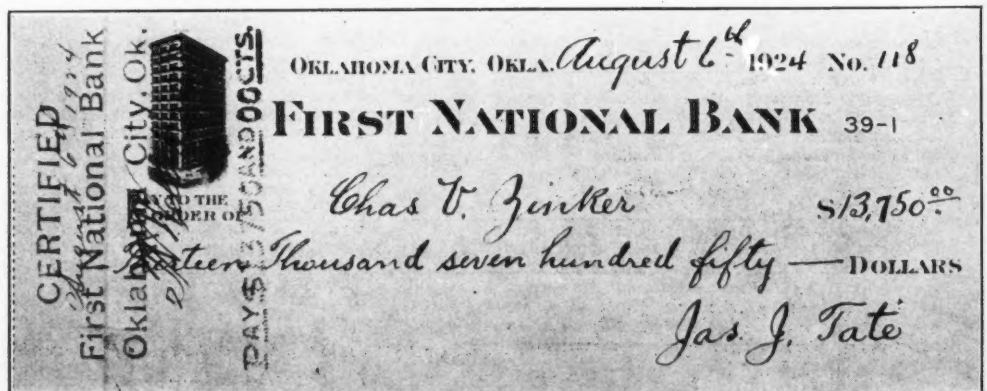 CERTIFIED
August 6 1924
First National Bank
Oklahoma City, Ok.
PAY $13750 AND 00 CTS.
OKLAHOMA CITY, OKLA. August 6th 1924 No. 118
FIRST NATIONAL BANK 39-1
PAY TO THE
ORDER OF Chas V. Zinker $13,750.00
Thirteen Thousand seven hundred fifty — DOLLARS
Jas. J. Tate